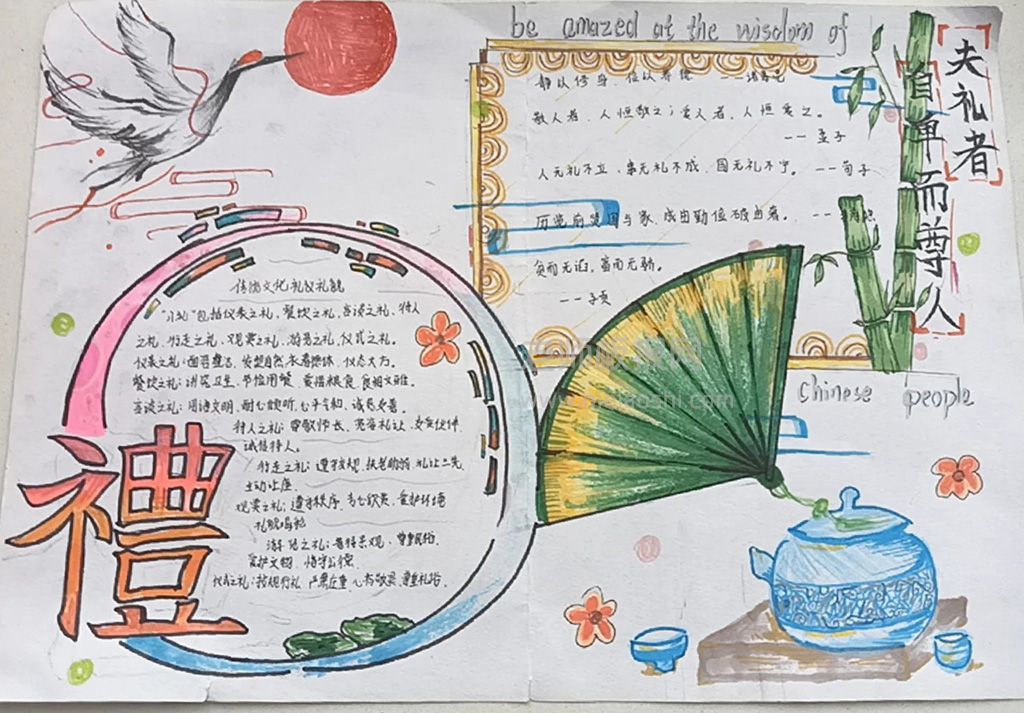 be amazed at the wisdom of
夫礼者
自卑而尊人
静以修身,俭以养德 ——诸葛亮
敬人者,人恒敬之;爱人者,人恒爱之。
——孟子
人无礼不立,事无礼不成,国无礼不宁。——荀子
历览前贤国与家,成由勤俭破由奢。——李商隐
贫而无谄,富而无骄。
——子贡
Chinese people
传统文化礼仪礼貌
"八礼"包括仪表之礼,餐饮之礼,言谈之礼,待人
之礼,行走之礼,观赏之礼,游览之礼,仪式之礼。
仪表之礼:面容整洁,衣着得体,仪态大方。
餐饮之礼:讲究卫生,节俭用餐,爱惜粮食,食相文雅。
言谈之礼:用语文明,耐心倾听,心平气和,诚恳友善。
待人之礼:尊敬师长,友爱伙伴
诚信待人。
行走之礼:遵守交规,扶老助弱,礼让三先
主动让座
观赏之礼:遵守秩序,专心欣赏,爱护环境
礼貌鸣
游览之礼:善待景观,
爱护文物,恪守公德
仪式之礼:按规行礼,严肃庄重,心存敬畏,尊重礼俗,
禮